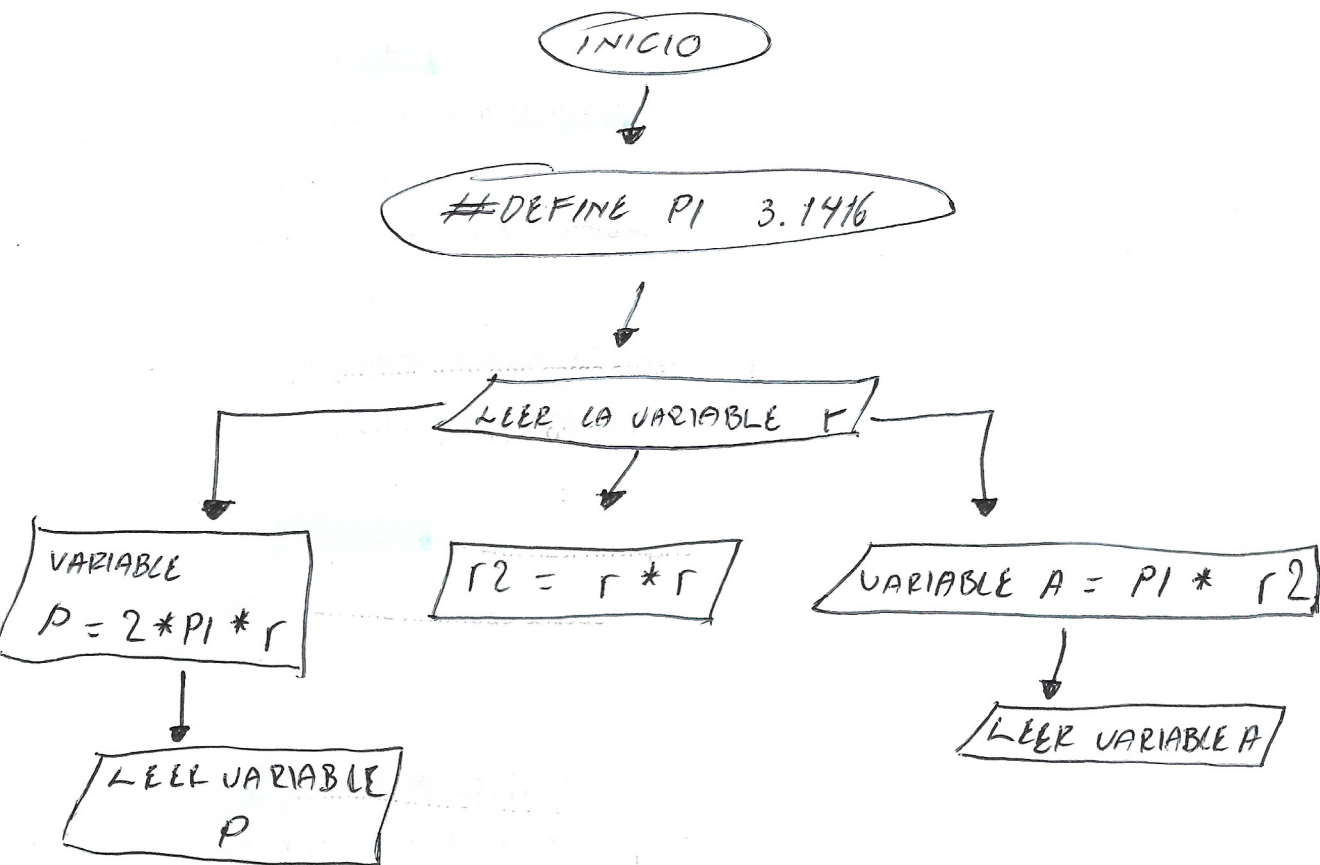 INICIO
#DEFINE PI 3.1416
LEER LA VARIABLE r
VARIABLE
P = 2 * PI * r
r2 = r * r
VARIABLE A = PI * r2
LEER VARIABLE
P
LEER VARIABLE A